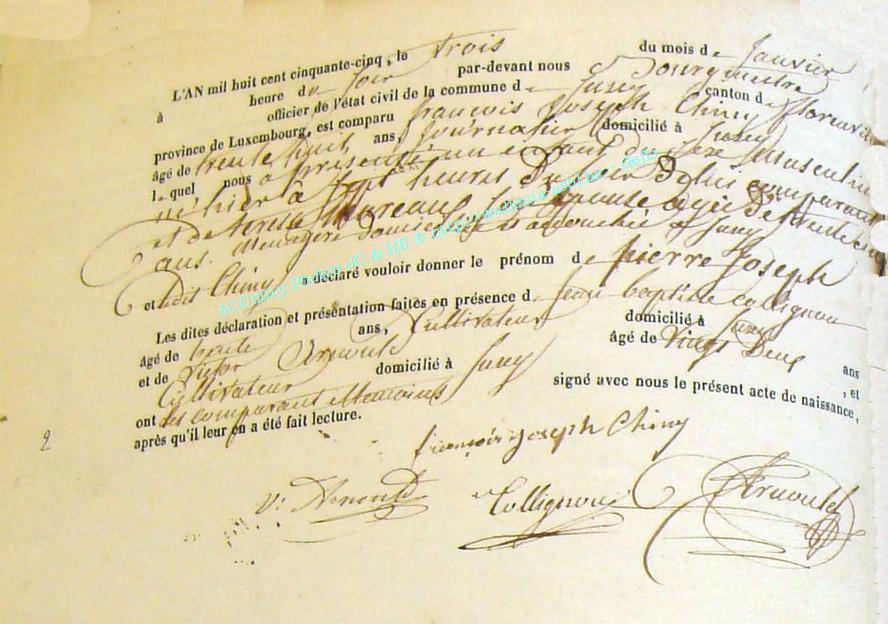 L'AN mil huit cent cinquante-cinq, le trois du mois de Janvier
à heure du soir par-devant nous Bourgmestre
officier de l'état civil de la commune de Jusey canton de florenville
province de Luxembourg, est comparu francois Joseph Chiny
âgé de trente huit ans, Journalier domicilié à Jusey
lequel nous a présenté un enfant du sexe Masculin
né hier à sept heures Du soir De lui comparant
et de son épouse agée De trente
ans. Menagère domiciliée et accouchée a Jusey
et udit Chiny a déclaré vouloir donner le prénom de pierre Joseph
Les dites déclaration et présentation faites en présence de Jean baptiste Collignon
âgé de trente ans, Cultivateur domicilié à Jusey
et de Victor Arnould âgé de Vingt Deux ans
Cultivateur domicilié à Jusey , et
ont les comparant et temoins signé avec nous le présent acte de naissance,
après qu'il leur en a été fait lecture.
2
françois joseph Chiny
V. Arnould Collignon Arnould